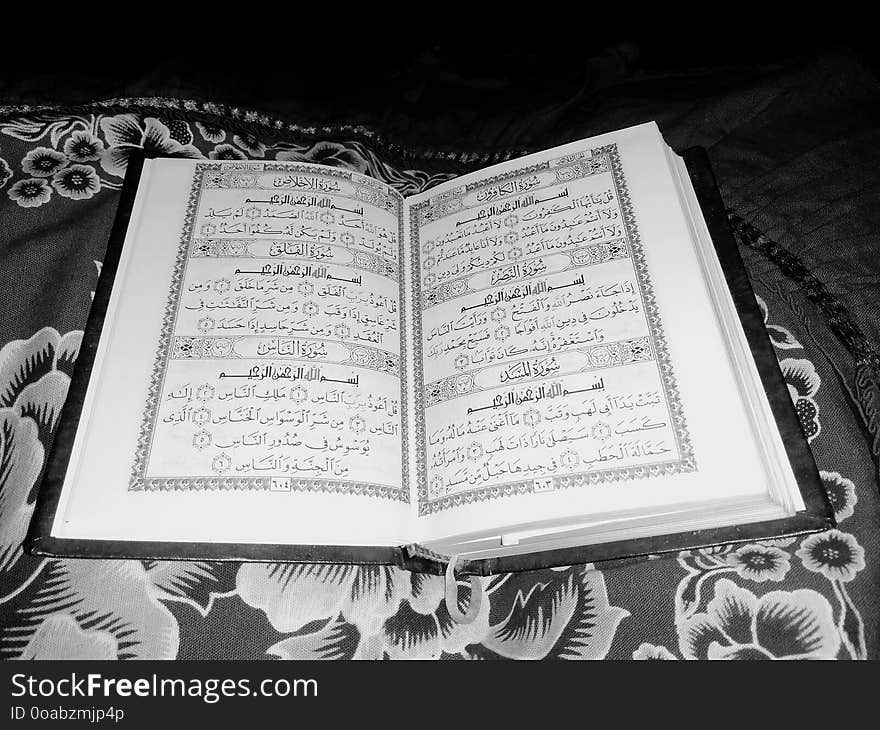 سُورَةُ الكَافِرُونَ
بِسْمِ اللَّهِ الرَّحْمَٰنِ الرَّحِيمِ
قُلْ يَا أَيُّهَا الْكَافِرُونَ ۝١ لَا أَعْبُدُ مَا تَعْبُدُونَ ۝٢
وَلَا أَنتُمْ عَابِدُونَ مَا أَعْبُدُ ۝٣ وَلَا أَنَا عَابِدٌ مَّا عَبَدتُّمْ ۝٤
وَلَا أَنتُمْ عَابِدُونَ مَا أَعْبُدُ ۝٥ لَكُمْ دِينُكُمْ وَلِيَ دِينِ ۝٦
سُورَةُ النَّصْرِ
بِسْمِ اللَّهِ الرَّحْمَٰنِ الرَّحِيمِ
إِذَا جَاءَ نَصْرُ اللَّهِ وَالْفَتْحُ ۝١ وَرَأَيْتَ النَّاسَ
يَدْخُلُونَ فِي دِينِ اللَّهِ أَفْوَاجًا ۝٢ فَسَبِّحْ بِحَمْدِ رَبِّكَ
وَاسْتَغْفِرْهُ إِنَّهُ كَانَ تَوَّابًا ۝٣
سُورَةُ المَسَدِ
بِسْمِ اللَّهِ الرَّحْمَٰنِ الرَّحِيمِ
تَبَّتْ يَدَا أَبِي لَهَبٍ وَتَبَّ ۝١ مَا أَغْنَىٰ عَنْهُ مَالُهُ وَمَا
كَسَبَ ۝٢ سَيَصْلَىٰ نَارًا ذَاتَ لَهَبٍ ۝٣ وَامْرَأَتُهُ
حَمَّالَةَ الْحَطَبِ ۝٤ فِي جِيدِهَا حَبْلٌ مِّن مَّسَدٍ ۝٥
٦٠٣
سُورَةُ الإِخْلَاصِ
بِسْمِ اللَّهِ الرَّحْمَٰنِ الرَّحِيمِ
قُلْ هُوَ اللَّهُ أَحَدٌ ۝١ اللَّهُ الصَّمَدُ ۝٢ لَمْ يَلِدْ
وَلَمْ يُولَدْ ۝٣ وَلَمْ يَكُن لَّهُ كُفُوًا أَحَدٌ ۝٤
سُورَةُ الفَلَقِ
بِسْمِ اللَّهِ الرَّحْمَٰنِ الرَّحِيمِ
قُلْ أَعُوذُ بِرَبِّ الْفَلَقِ ۝١ مِن شَرِّ مَا خَلَقَ ۝٢ وَمِن
شَرِّ غَاسِقٍ إِذَا وَقَبَ ۝٣ وَمِن شَرِّ النَّفَّاثَاتِ فِي
الْعُقَدِ ۝٤ وَمِن شَرِّ حَاسِدٍ إِذَا حَسَدَ ۝٥
سُورَةُ النَّاسِ
بِسْمِ اللَّهِ الرَّحْمَٰنِ الرَّحِيمِ
قُلْ أَعُوذُ بِرَبِّ النَّاسِ ۝١ مَلِكِ النَّاسِ ۝٢ إِلَٰهِ
النَّاسِ ۝٣ مِن شَرِّ الْوَسْوَاسِ الْخَنَّاسِ ۝٤ الَّذِي
يُوَسْوِسُ فِي صُدُورِ النَّاسِ ۝٥
مِنَ الْجِنَّةِ وَالنَّاسِ ۝٦
٦٠٤
StockFreeImages.com
ID 0oabzmjp4p